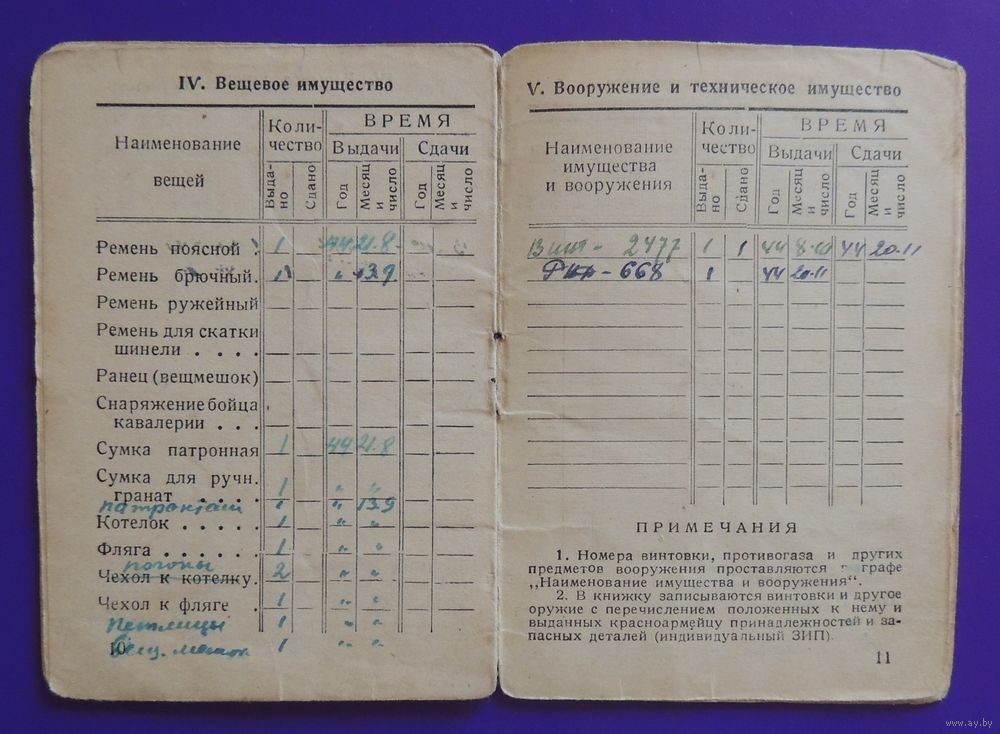 IV. Вещевое имущество
Наименование вещей
Количество
ВРЕМЯ
Выдачи Сдачи
Выдано
Сдано
Год
Месяц и число
Год
Месяц и число
Ремень поясной 1 44 21.8
Ремень брючный. 1 " 13.9
Ремень ружейный
Ремень для скатки
шинели . . . .
Ранец (вещмешок)
Снаряжение бойца
кавалерии . . .
Сумка патронная 1 44 21.8
Сумка для ручн.
гранат . . . . 1 " "
патронташ 1 " 13.9
Котелок . . . . . 1 " "
Фляга . . . . . . 1 " "
погоны
Чехол к котелку. 2 " "
Чехол к фляге . 1 " "
петлицы 1 " "
10 вещ. мешок 1 " "
V. Вооружение и техническое имущество
Наименование
имущества
и вооружения
Коли-
чество
ВРЕМЯ
Выдачи Сдачи
Выда-
но
Сдано
Год
Месяц и число
Год
Месяц и число
Винт - 2477 1 1 44 8.10 44 20.11
- 668 1 44 20.11
ПРИМЕЧАНИЯ
1. Номера винтовки, противогаза и других
предметов вооружения проставляются в графе
„Наименование имущества и вооружения“.
2. В книжку записываются винтовки и другое
оружие с перечислением положенных к нему и
выданных красноармейцу принадлежностей и за-
пасных деталей (индивидуальный ЗИП)
11
www.ay.by